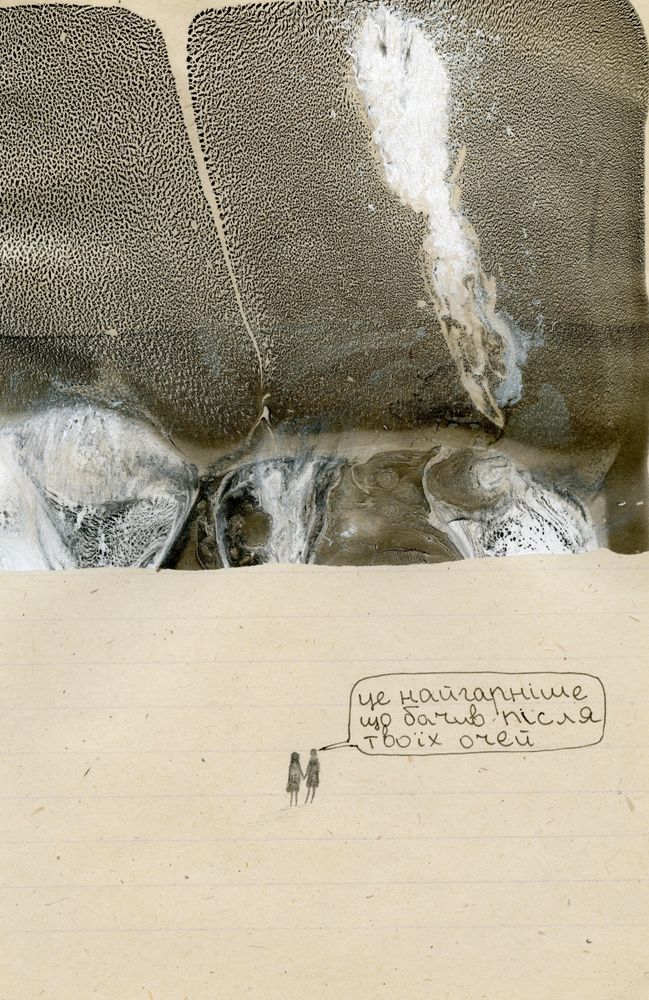 це найгарніше
що бачив після
твоїх очей